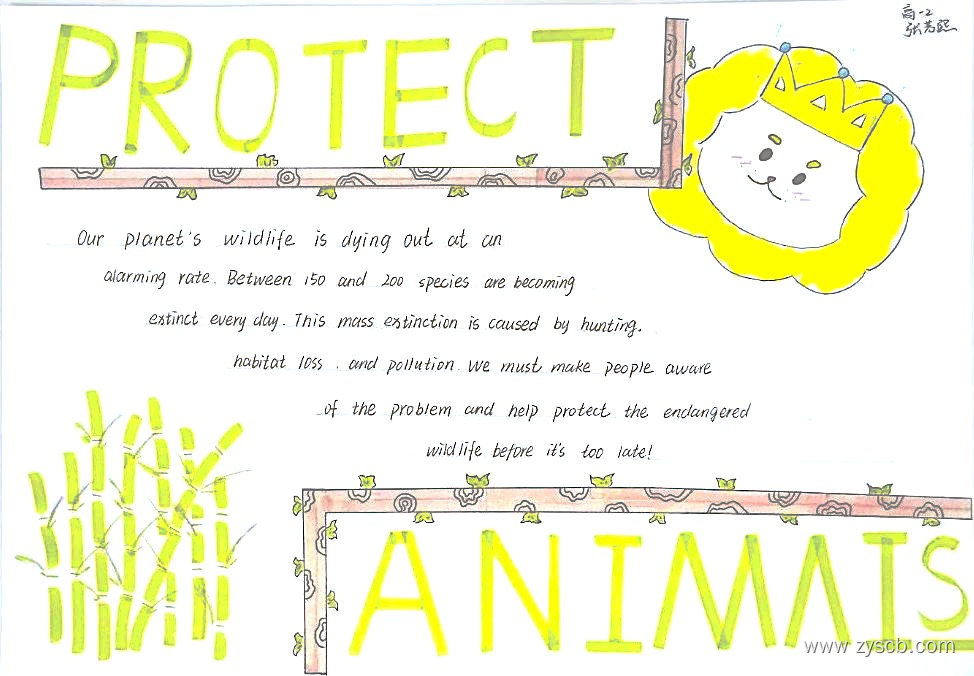 高一2
PROTECT
Our planet's wildlife is dying out at an
alarming rate. Between 150 and 200 species are becoming
extinct every day. This mass extinction is caused by hunting.
habitat loss . and pollution. We must make people aware
of the problem and help protect the endangered
wildlife before it's too late!
ANIMALS
www.zyscb.com